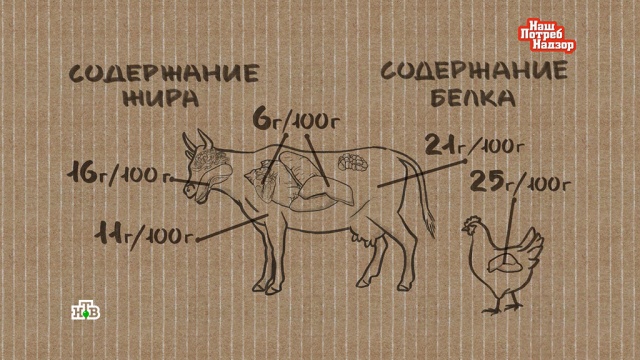 Наш
Потреб
Надзор
СОДЕРЖАНИЕ
ЖИРА
СОДЕРЖАНИЕ
БЕЛКА
6г/100г
16г/100г
11г/100г
21г/100г
25г/100г
НТВ